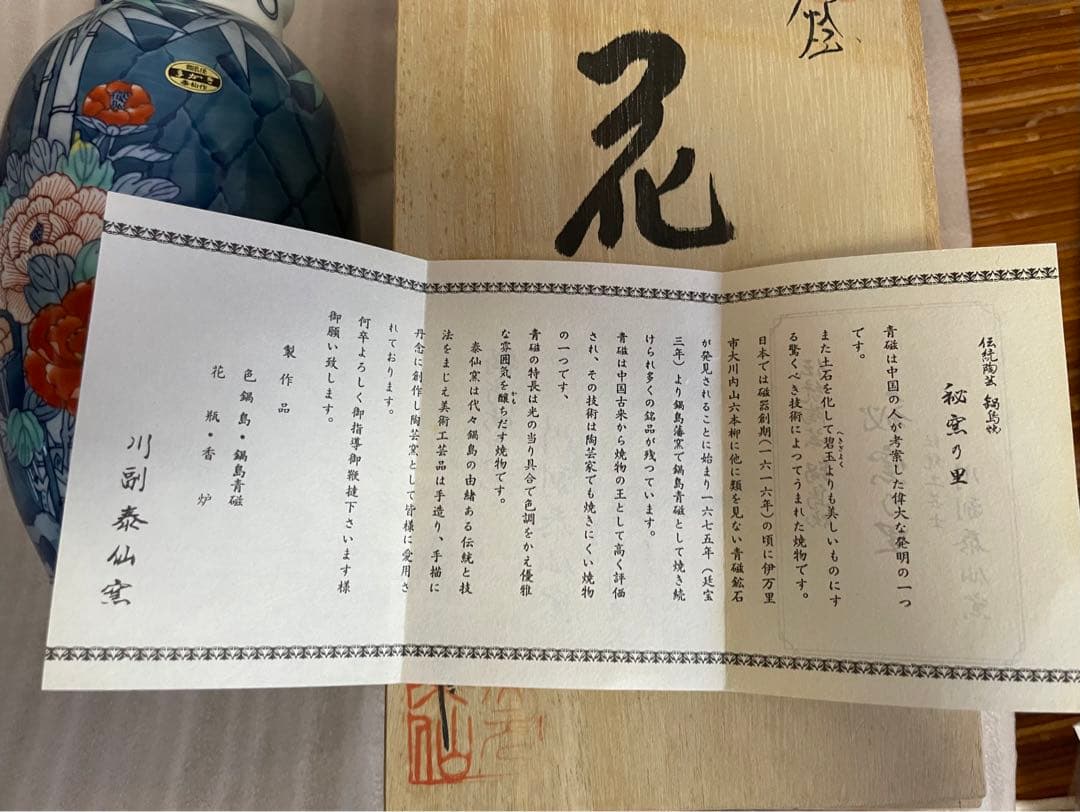 伝統陶芸 鍋島焼
秘窯の里
青磁は中国の人が考案した偉大な発明の一つ
です。
また土石を化して碧玉よりも美しいものにす
へきぎよく
る驚くべき技術によつてうまれた焼物です。
日本では磁器創期（一六一六年）の頃に伊万里
市大川内山六本柳に他に類を見ない青磁鉱石
が発見されることに始まり一六七五年（廷宝
三年）より鍋島藩窯で鍋島青磁として焼き続
けられ多くの銘品が残つています。
青磁は中国古来から焼物の王として高く評価
され、その技術は陶芸家でも焼きにくい焼物
の一つです、
青磁の特長は光の当り具合で色調をかえ優雅
な雰囲気を醸ちだす焼物です。
かも
泰仙窯は代々鍋島の由緒ある伝統と技
法をまじえ美術工芸品は手造り、手描に
丹念に創作し陶芸窯として皆様に愛用さ
れております。
何卒よろしく御指導御鞭撻下さいます様
御願い致します。
製作品
色鍋島・鍋島青磁
花瓶・香炉
川副泰仙窯
花
窯
泰仙作